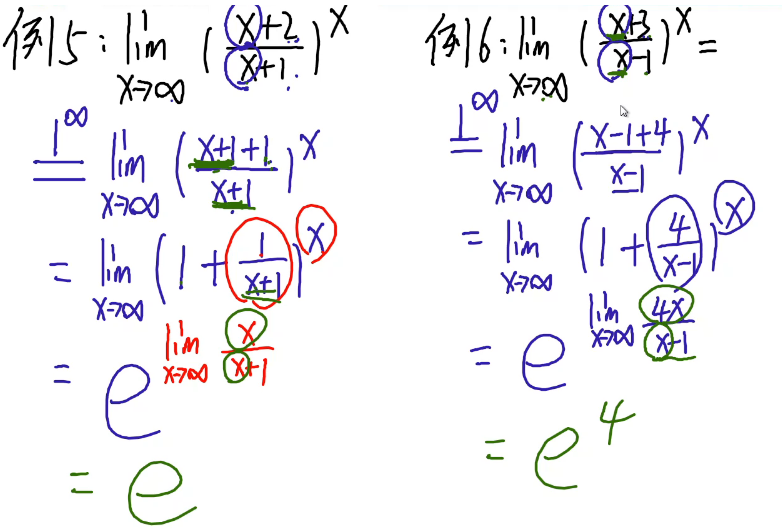 例5: lim x→∞ ((x+2)/(x+1))^x
1^∞ = lim x→∞ ((x+1+1)/(x+1))^x
= lim x→∞ (1 + 1/(x+1))^x
= e^(lim x→∞ x/(x+1))
= e
例6: lim x→∞ ((x+3)/(x-1))^x =
1^∞ = lim x→∞ ((x-1+4)/(x-1))^x
= lim x→∞ (1 + 4/(x-1))^x
= e^(lim x→∞ 4x/(x-1))
= e^4